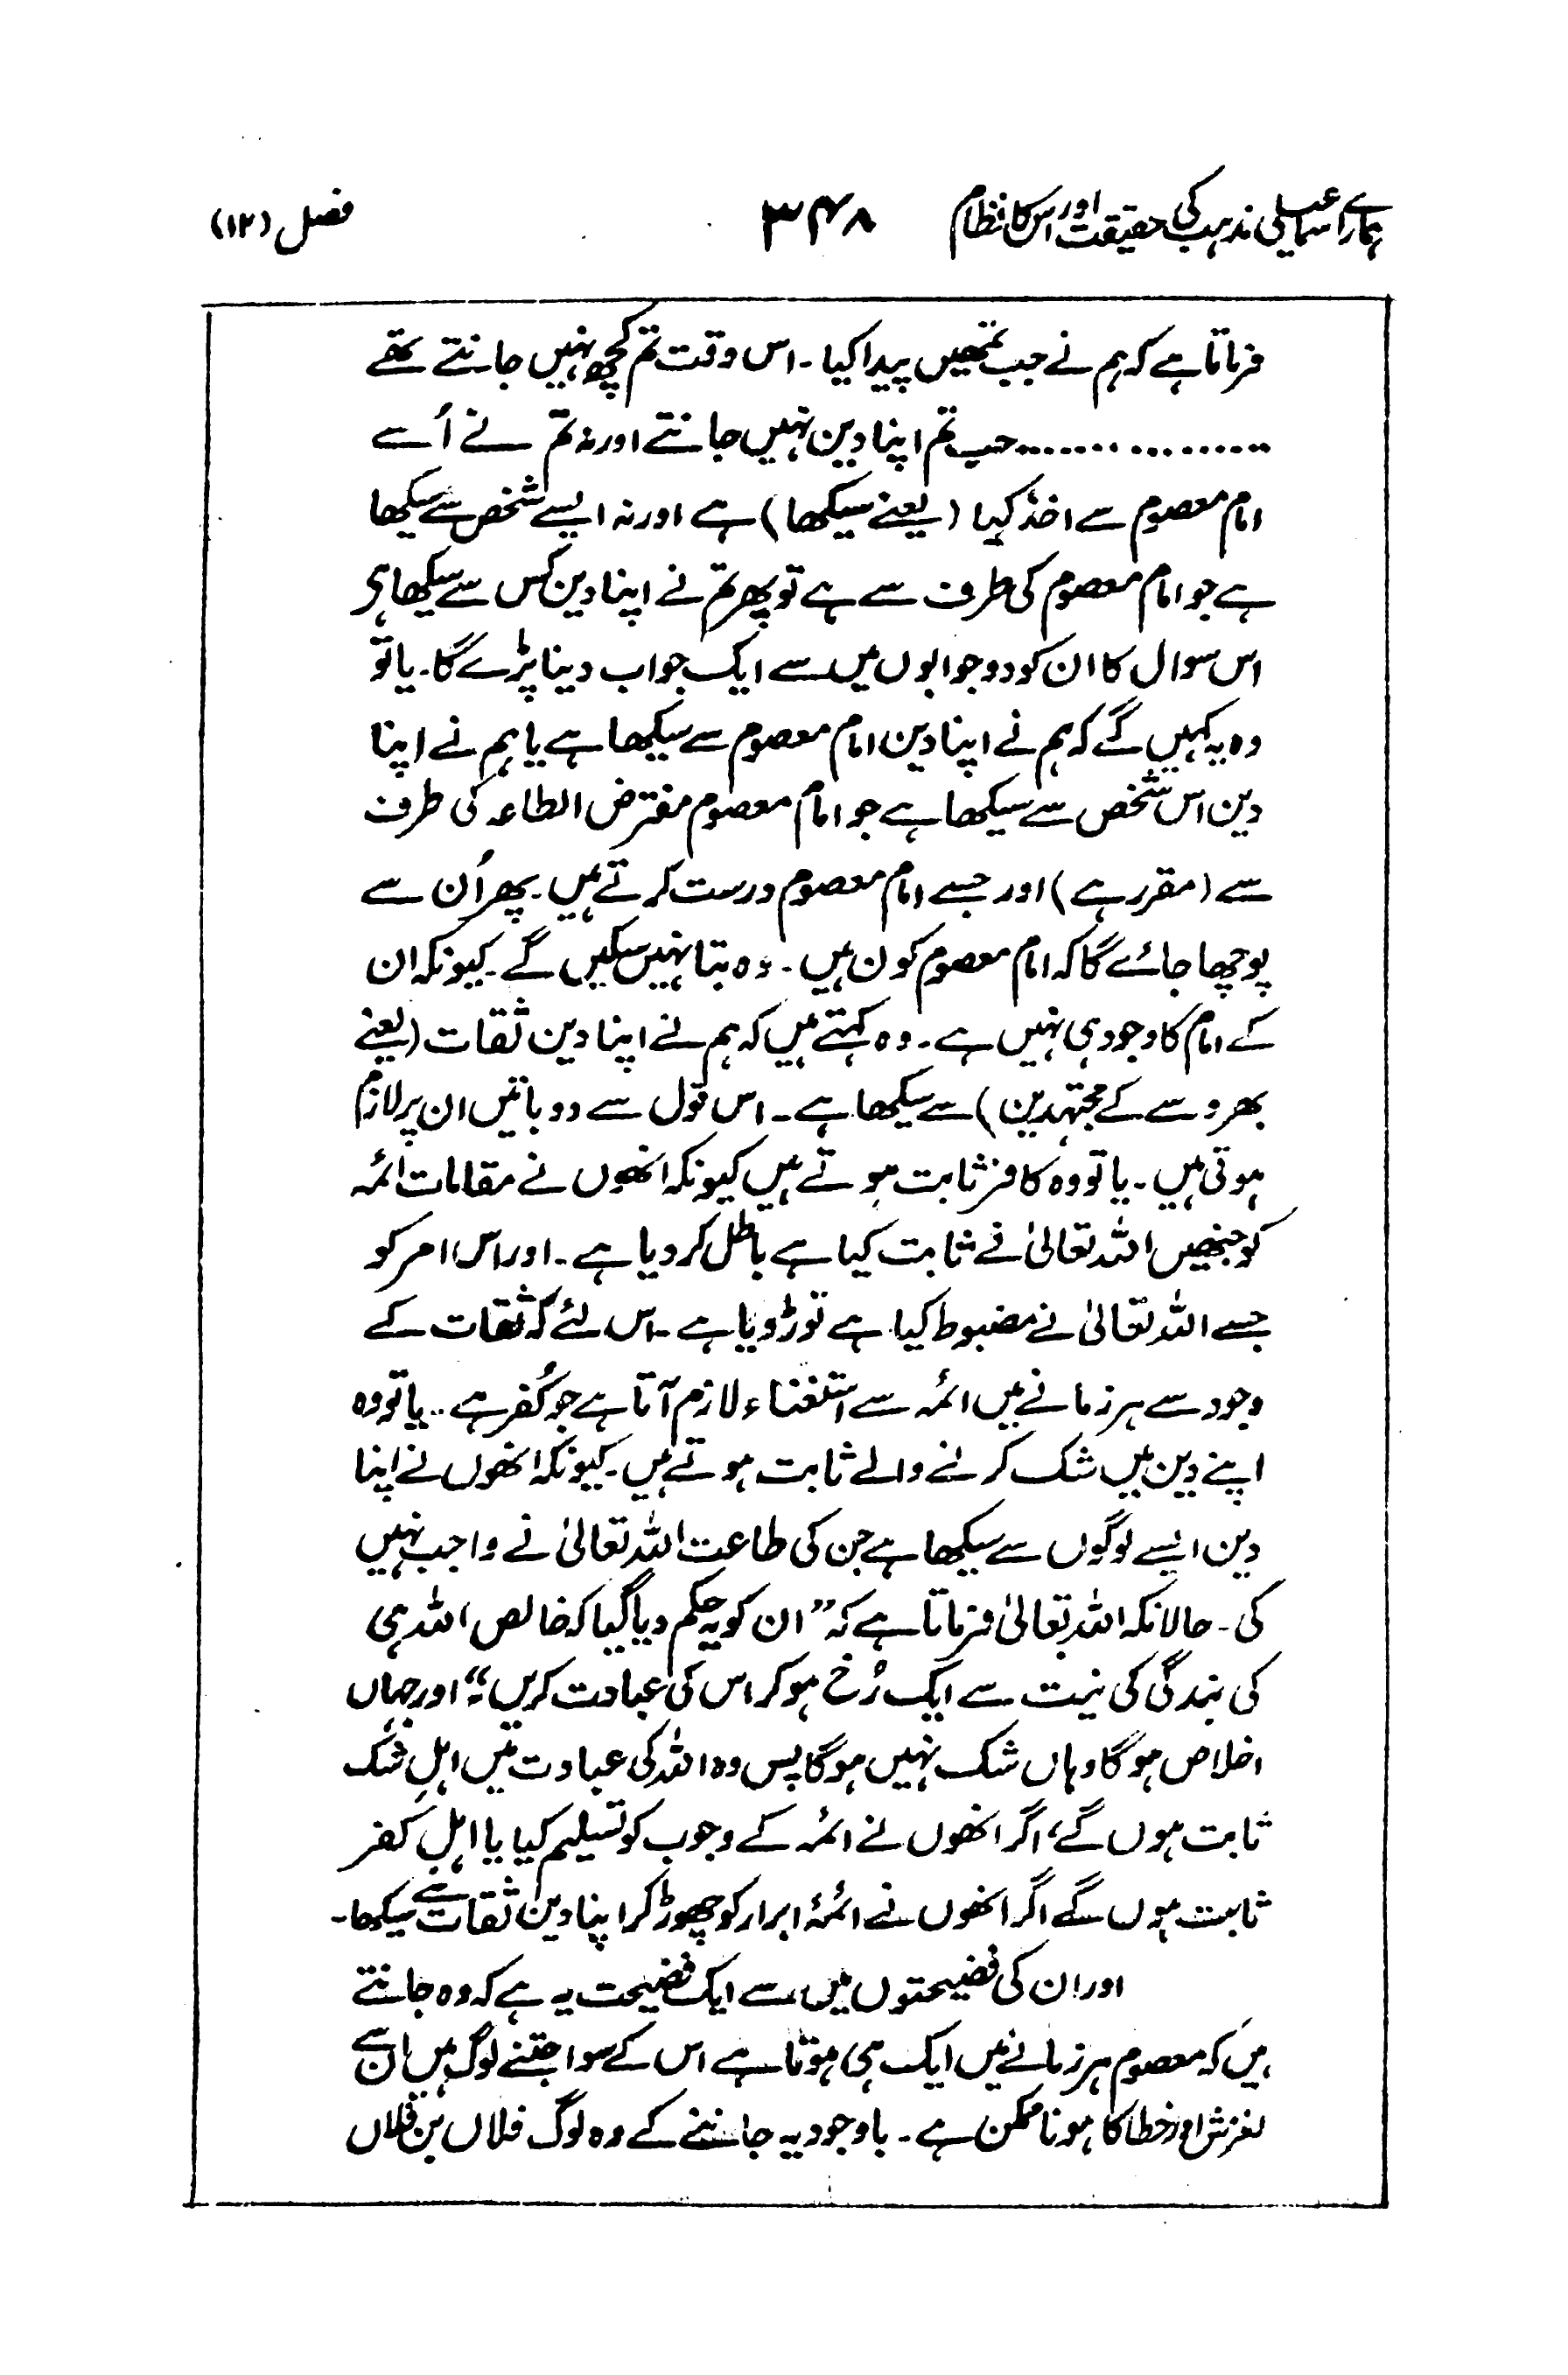 ہمارے اسماعیلی مذہب کی حقیقت اور اس کا نظام ۳۴۸ فصل (۱۲)
فرماتا ہے کہ ہم نے جب تمھیں پیدا کیا ۔ اس وقت تم کچھ نہیں جانتے تھے
................ جب تم اپنا دین نہیں جانتے اور نہ تم نے اُسے
امام معصوم سے اخذ کیا (یعنے سیکھا) ہے اور نہ ایسے شخص سے سیکھا
ہے جو امام معصوم کی طرف سے ہے تو پھر تم نے اپنا دین کس سے سیکھا ہی
اس سوال کا ان کو دو جوابوں میں سے ایک جواب دینا پڑے گا ۔ یا تو
وہ یہ کہیں گے کہ ہم نے اپنا دین امام معصوم سے سیکھا ہے یا ہم نے اپنا
دین اس شخص سے سیکھا ہے جو امام معصوم مفترض الطاعہ کی طرف
سے (مقرر ہے) اور جسے امام معصوم درست کرتے ہیں ۔ پھر اُن سے
پوچھا جائے گا کہ امام معصوم کون ہیں ۔ وہ بتا نہیں سکیں گے ۔ کیونکہ ان
کے امام کا وجود ہی نہیں ہے ۔ وہ کہتے ہیں کہ ہم نے اپنا دین ثقات (یعنے
بھروسے کے مجتہدین) سے سیکھا ہے ۔ اس قول سے دو باتیں ان پر لازم
ہوتی ہیں ۔ یا تو وہ کافر ثابت ہوتے ہیں کیونکہ انھوں نے مقامات ائمہ
کو جنھیں اللہ تعالیٰ نے ثابت کیا ہے باطل کر دیا ہے ۔ اور اس امر کو
جسے اللہ تعالیٰ نے مضبوط کیا ہے توڑ دیا ہے ۔ اس لئے کہ ثقات کے
وجود سے ہر زمانے میں ائمہ سے استغناء لازم آتا ہے جو کُفر ہے ۔ یا تو وہ
اپنے دین میں شک کرنے والے ثابت ہوتے ہیں ۔ کیونکہ انھوں نے اپنا
دین ایسے لوگوں سے سیکھا ہے جن کی طاعت اللہ تعالیٰ نے واجب نہیں
کی ۔ حالانکہ اللہ تعالیٰ فرماتا ہے کہ ”ان کو یہ حکم دیا گیا کہ خالص اللہ ہی
کی بندگی کی نیت سے ایک رُخ ہو کر اس کی عبادت کریں“ اور جہاں
اخلاص ہو گا وہاں شک نہیں ہو گا پس وہ اللہ کی عبادت میں اہلِ شک
ثابت ہوں گے، اگر انھوں نے ائمہ کے وجوب کو تسلیم کیا یا اہلِ کفر
ثابت ہوں گے اگر انھوں نے ائمۂ ابرار کو چھوڑ کر اپنا دین ثقات سے سیکھا ۔
اور ان کی فضیحتوں میں سے ایک فضیحت یہ ہے کہ وہ جانتے
ہیں کہ معصوم ہر زمانے میں ایک ہی ہوتا ہے اس کے سوا جتنے لوگ ہیں ان سے
لغزش اور خطا کا ہونا ممکن ہے ۔ باوجود یہ جاننے کے وہ لوگ فلاں بن فلاں